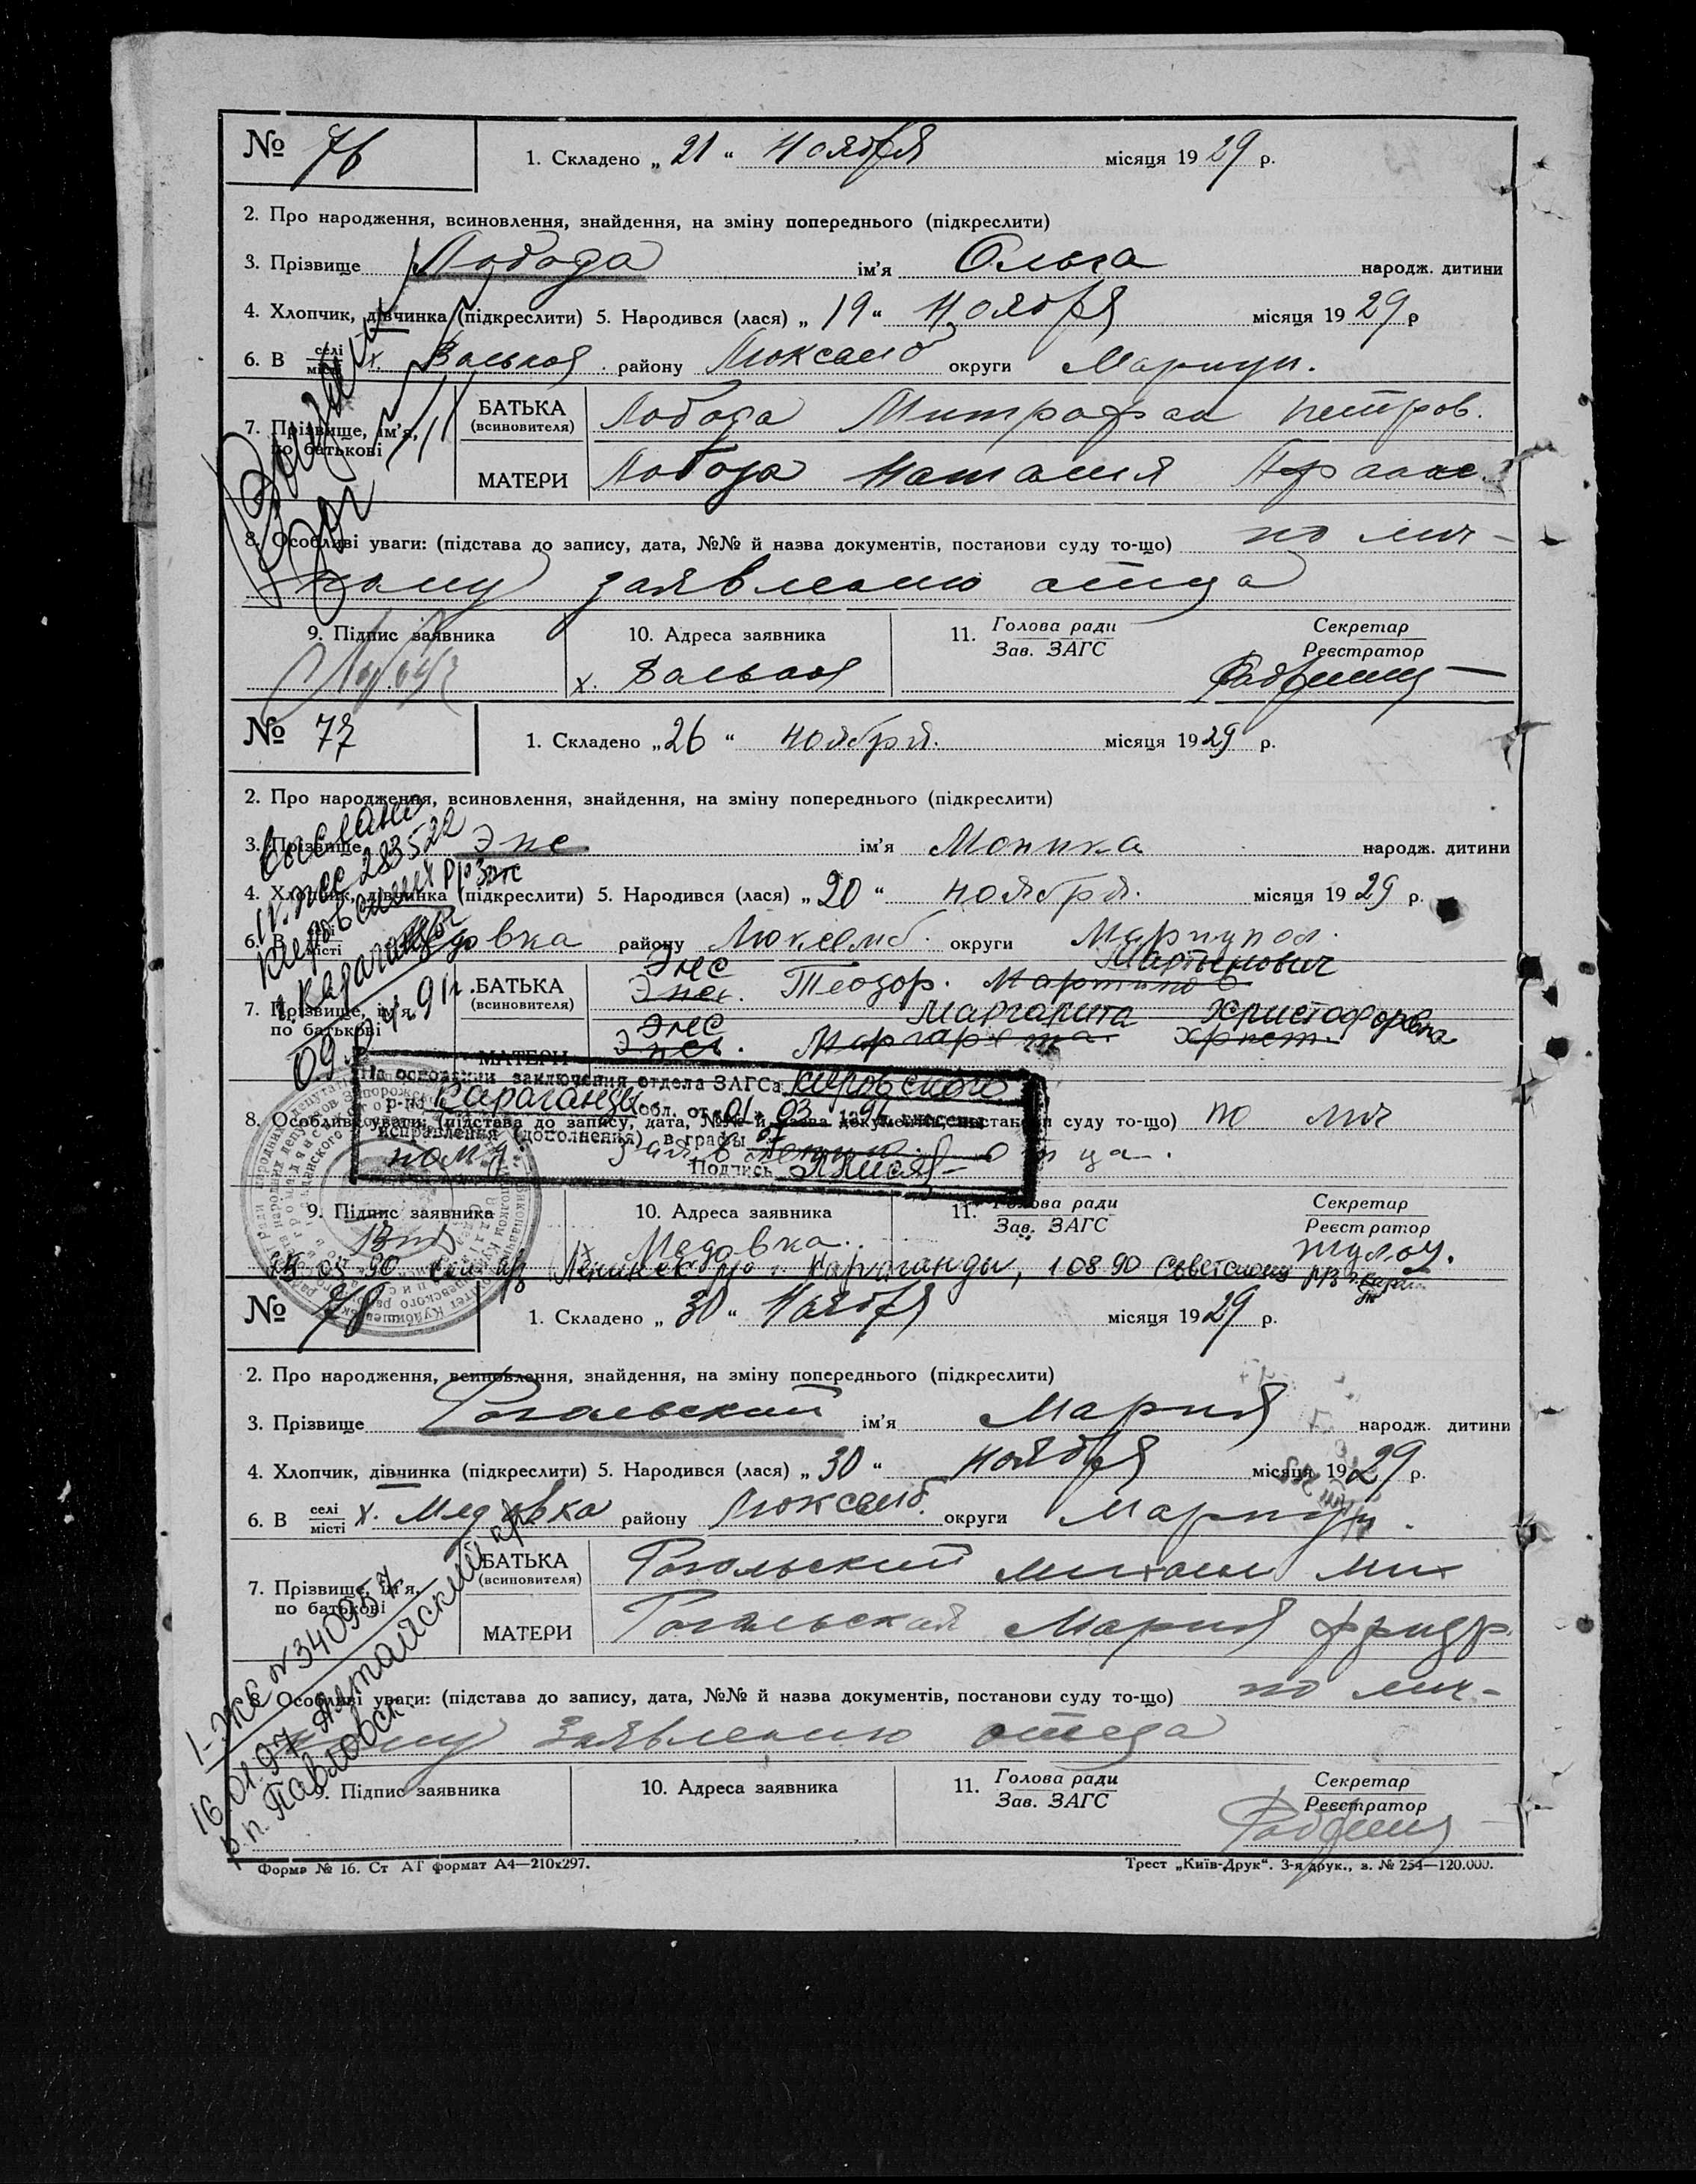 № 76 1. Складено „ 21 “ Ноября місяця 1929 р.
2. Про народження, всиновлення, знайдення, на зміну попереднього (підкреслити)
3. Прізвище Лобода ім’я Ольга народж. дитини
4. Хлопчик, дівчинка (підкреслити) 5. Народився (лася) „ 19 “ Ноября місяця 1929 р
6. В селі місті х. району Люксемб округи Мариуп.
7. Прізвище, ім’я, по батькові
БАТЬКА (всиновителя) Лобода Митрофан Петров.
МАТЕРИ Лобода Наталия
8. Особливі уваги: (підстава до запису, дата, №№ й назва документів, постанови суду то-що) по лич-
ному заявлению отца
9. Підпис заявника 10. Адреса заявника 11. Голова ради Секретар
Зав. ЗАГС Реєстратор
х.
№ 77 1. Складено „ 26 “ ноября. місяця 1929 р.
2. Про народження, всиновлення, знайдення, на зміну попереднього (підкреслити)
3. Прізвище Эпс ім’я Моника народж. дитини
4. Хлопчик, дівчинка (підкреслити) 5. Народився (лася) „ 20 “ ноября. місяця 1929 р.
6. В селі місті Медовка району Люксемб. округи Мариупол.
Мартынович
7. Прізвище, ім’я, по батькові
БАТЬКА (всиновителя) Теодор.
Маргарита Христофоровна
МАТЕРИ Маргарета Христ.
На основании заключения отдела ЗАГСа Кировского
р-на Караганды обл. от 01 03 1991 внесены
8. Особливі уваги: (підстава до запису, дата, №№ й назва документів, постанови суду то-що) по лич
исправления (дополнения) в графы 07
ному заявлению отца.
Подпись
9. Підпис заявника 10. Адреса заявника 11. Голова ради Секретар
Зав. ЗАГС Реєстратор
Медовка.
Караганды, 1 08 90 Советским
№ 78 1. Складено „ 30 “ Ноября місяця 1929 р.
2. Про народження, всиновлення, знайдення, на зміну попереднього (підкреслити)
3. Прізвище Рогальский ім’я Мария народж. дитини
4. Хлопчик, дівчинка (підкреслити) 5. Народився (лася) „ 30 “ Ноября місяця 1929 р.
6. В селі місті х. Медовка району Люксемб. округи Мариуп.
7. Прізвище, ім’я, по батькові
БАТЬКА (всиновителя) Рогольский Михаил Мих
МАТЕРИ Рогальская Мария Фридр.
8. Особливі уваги: (підстава до запису, дата, №№ й назва документів, постанови суду то-що) по лич-
ному заявлению отца
1-ЖС № 340957
16.01.97 Алтайский кр
р.п. Павловск
9. Підпис заявника 10. Адреса заявника 11. Голова ради Секретар
Зав. ЗАГС Реєстратор
Форма № 16. Ст АТ формат А4—210х297. Трест „Київ-Друк“. 3-я друк., з. № 254—120.000.